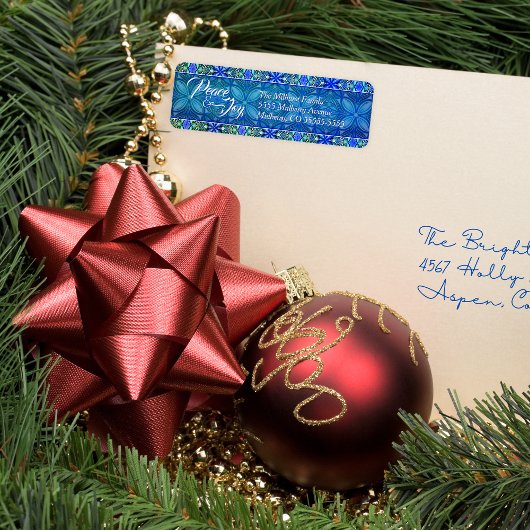 Peace
& Joy
The Milhouse Family
5555 Mulberry Avenue
Mulberry, CO 55555-5555
The Bright
4567 Holly
Aspen, Co